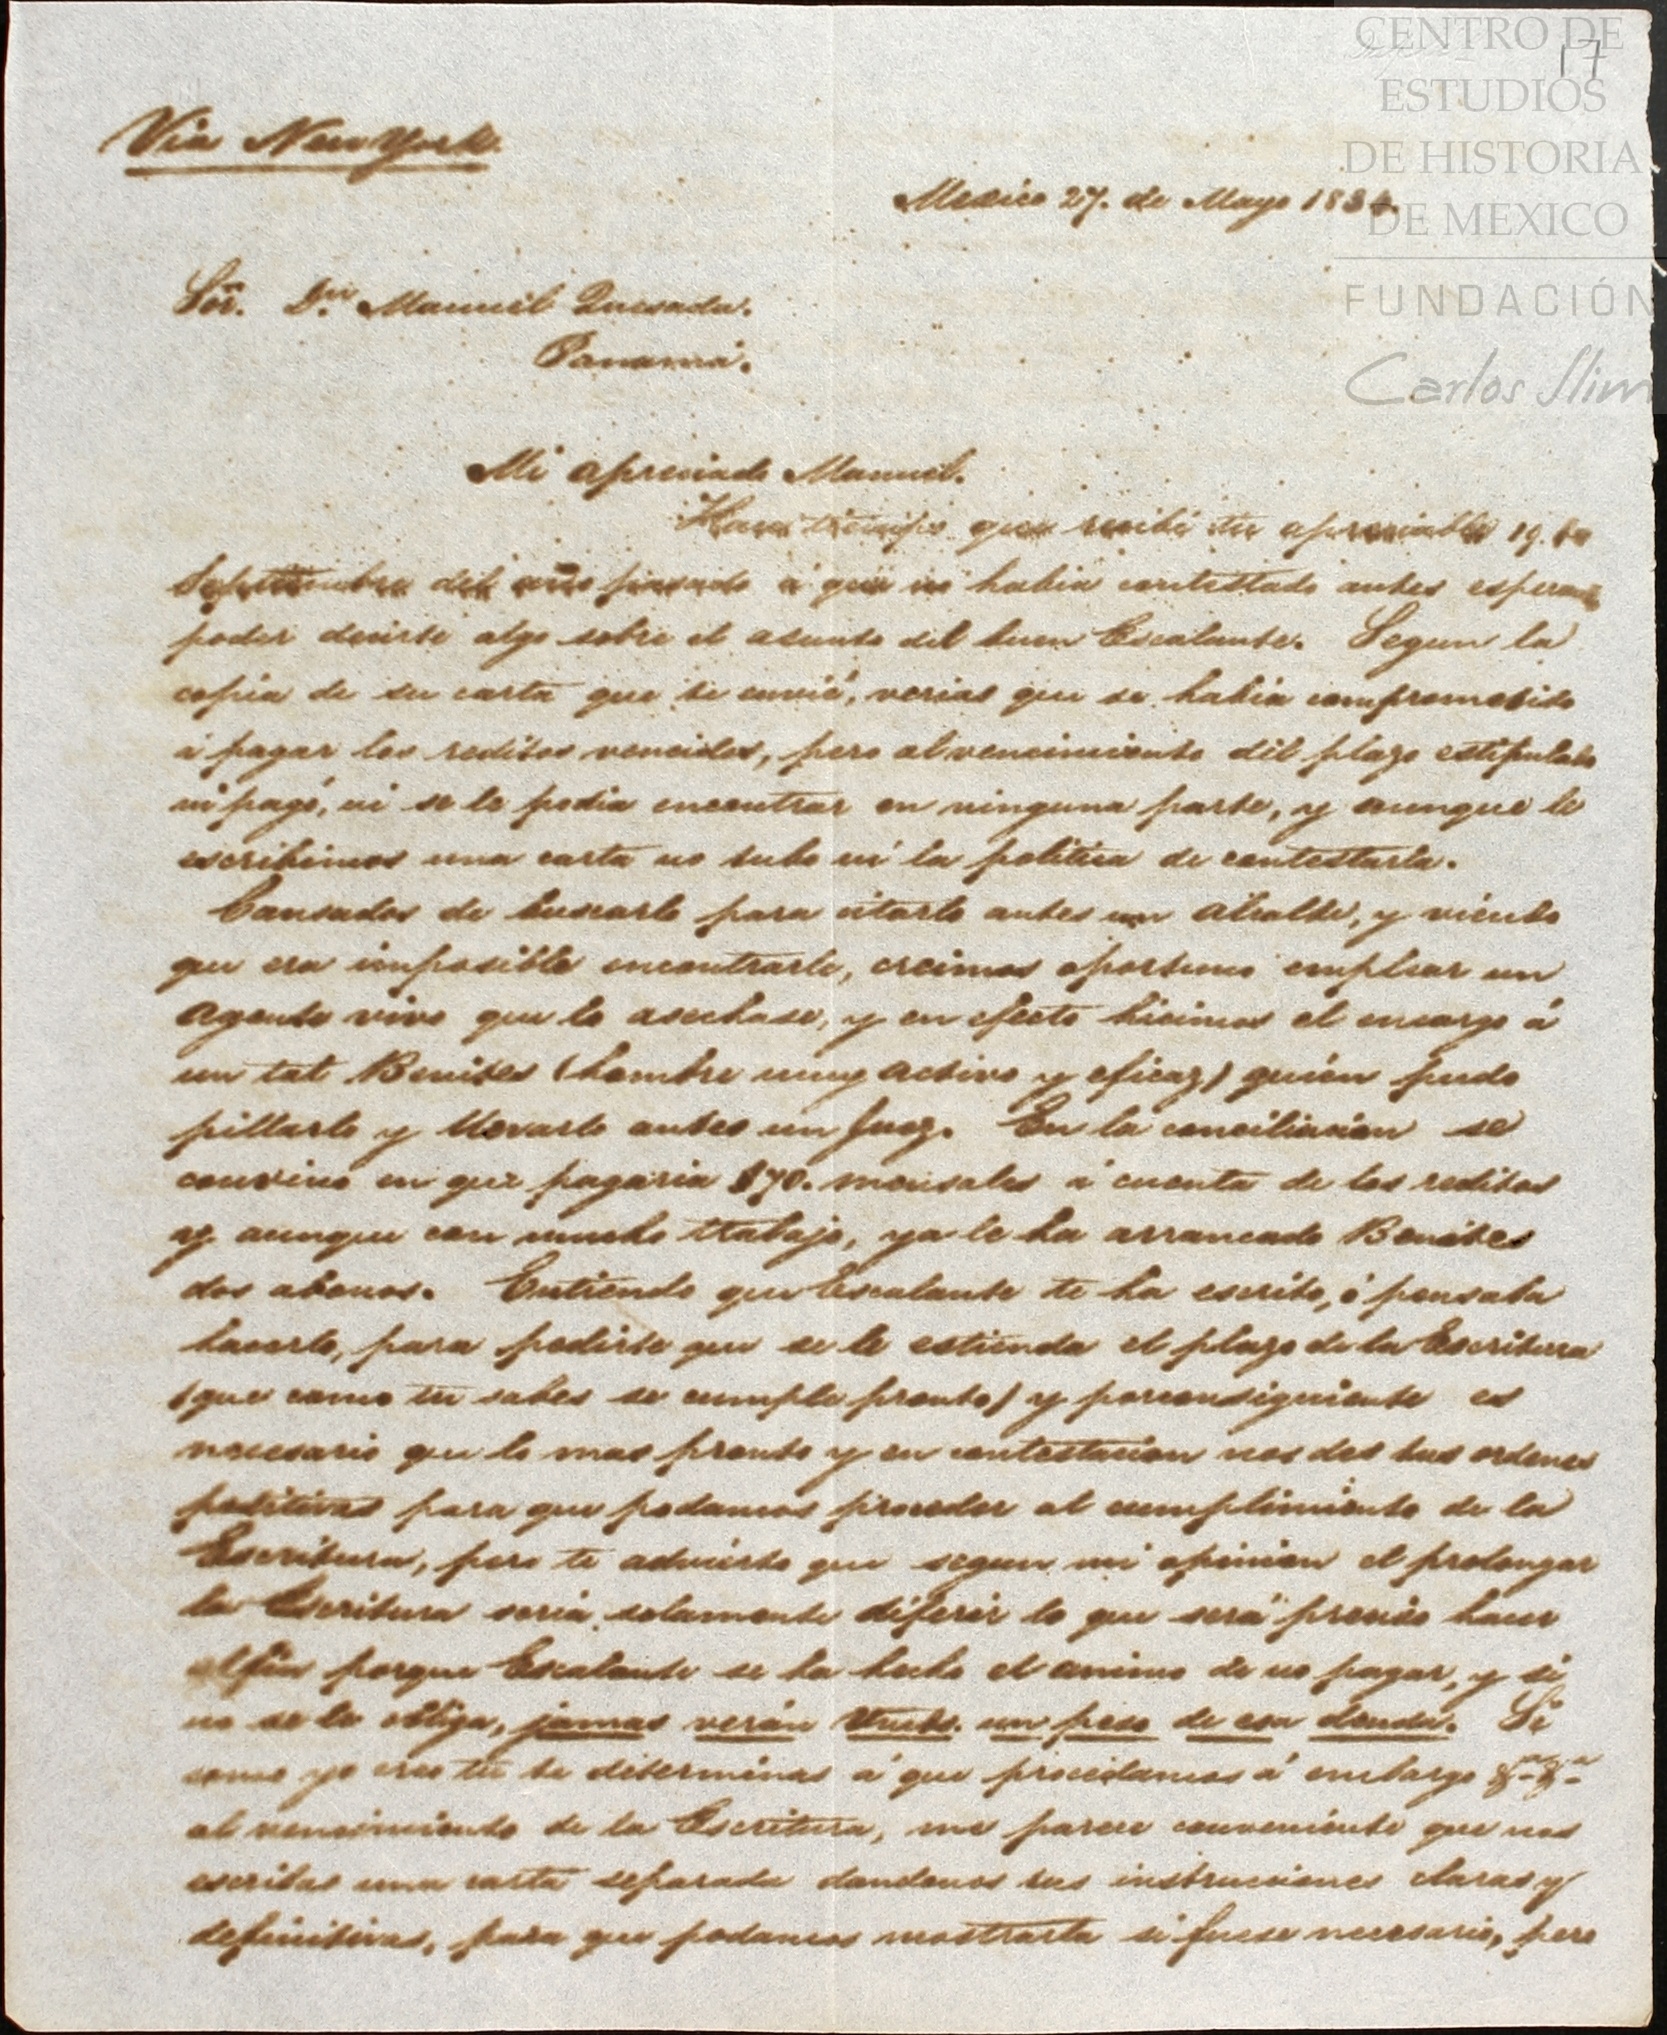 CENTRO DE
ESTUDIOS
DE HISTORIA
DE MEXICO
FUNDACIÓN
Carlos Slim
17
Via New York.
Mexico 27. de Mayo 18
Sor. Dn. Manuel Quesada.
Panamá.
Mi apreciado Manuel.
Hace tiempo que recibí tu apreciable 19. de
Septiembre del año pasado á que no habia contestado antes
poder decirte algo sobre el asunto del buen Escalante. Segun la
copia de su carta que te envié, verias que se habia comprometido
á pagar los reditos vencidos, pero al vencimiento del plazo estipulado
ni pagó, ni se le podia encontrar en ninguna parte, y aunque le
escribimos una carta no tubo ni la politica de contestarla.
Cansados de buscarlo para citarlo antes un Alcalde, y viendo
que era imposible encontrarle, creimos oportuno emplear un
Agente vivo que lo asechase, y en efecto hicimos el encargo á
un tal Benites (hombre muy activo y eficaz) quién pudo
pillarlo y llevarlo antes un Juez. En la conciliacion se
convino en que pagaria $70. mensales á cuenta de los reditos
y aunque con mucho trabajo, ya le ha arrancado Benites
dos abonos. Entiendo que Escalante te ha escrito, ó pensaba
hacerlo, para pedirte que se le estienda el plazo de la Escritura
(que como tu sabes se cumple pronto) y porconsiguiente es
necesario que lo mas pronto y en contestacion nos des tus ordenes
positivas para que podamos proceder al cumplimiento de la
Escritura, pero te advierto que segun mi opinion el prolongar
la Escritura seria solamente diferir lo que será preciso hacer
al fin porque Escalante se ha hecho el animo de no pagar, y si
no se le obliga, jamas verán un peso de esa deuda. Si
como yo creo tu te determinas á que procedamos á embargo &a &a
al vencimiento de la Escritura, me parece conveniente que nos
escribas una carta separada dandonos tus instrucciones claras y
definitivas, para que podamos mostrarla si fuese necesario, pero